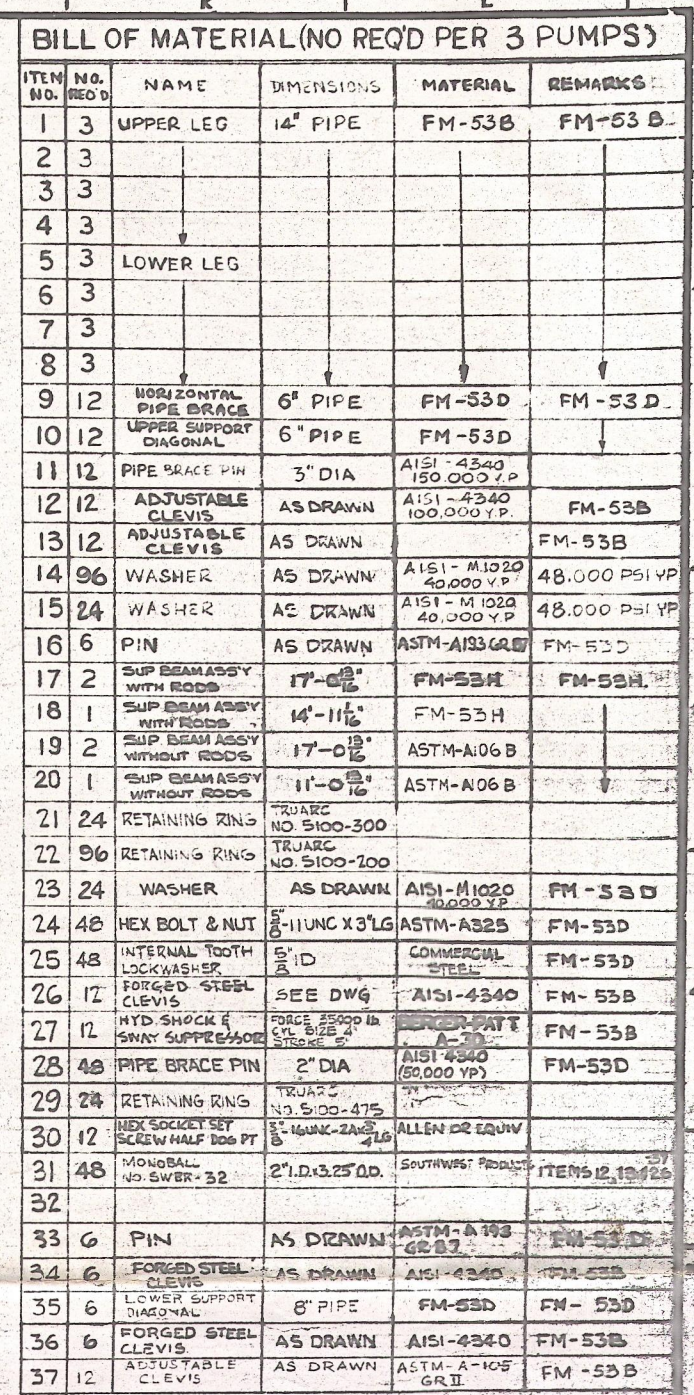 BILL OF MATERIAL (NO REQ'D PER 3 PUMPS)
ITEM NO. NO. REQ'D NAME DIMENSIONS MATERIAL REMARKS
1 3 UPPER LEG 14" PIPE FM-53B FM-53 B
2 3
3 3
4 3
5 3 LOWER LEG
6 3
7 3
8 3
9 12 HORIZONTAL PIPE BRACE 6" PIPE FM-53D FM-53 D
10 12 UPPER SUPPORT DIAGONAL 6" PIPE FM-53D
11 12 PIPE BRACE PIN 3" DIA AISI-4340 150.000 Y.P
12 12 ADJUSTABLE CLEVIS AS DRAWN AISI-4340 100,000 Y.P. FM-53B
13 12 ADJUSTABLE CLEVIS AS DRAWN FM-53B
14 96 WASHER AS DRAWN AISI-M.1020 40,000 Y.P 48.000 PSI YP
15 24 WASHER AS DRAWN AISI-M 1020 40,000 Y.P 48.000 PSI YP
16 6 PIN AS DRAWN ASTM-A193 FM-53D
17 2 SUP BEAM ASS'Y WITH RODS 17'-0 13/16" FM-53H FM-53H
18 1 SUP BEAM ASS'Y WITH RODS 14'-11 1/16" FM-53H
19 2 SUP BEAM ASS'Y WITHOUT RODS 17'-0 13/16" ASTM-A106 B
20 1 SUP BEAM ASS'Y WITHOUT RODS 11'-0 13/16" ASTM-A106 B
21 24 RETAINING RING TRUARC NO. 5100-300
22 96 RETAINING RING TRUARC NO. 5100-200
23 24 WASHER AS DRAWN AISI-M1020 40,000 Y.P FM-53D
24 48 HEX BOLT & NUT 5/8"-11UNC X 3"LG ASTM-A325 FM-53D
25 48 INTERNAL TOOTH LOCKWASHER 5/8" ID COMMERCIAL STEEL FM-53D
26 12 FORGED STEEL CLEVIS SEE DWG AISI-4340 FM-53B
27 12 HYD. SHOCK & SWAY SUPPRESSOR FORCE 35000 lb. CYL SIZE 4" STROKE 5" BERGEN-PATT A-30 FM-53B
28 48 PIPE BRACE PIN 2" DIA AISI 4340 (50,000 YP) FM-53D
29 24 RETAINING RING TRUARC NO. 5100-475
30 12 HEX SOCKET SET SCREW HALF DOG PT 3/8"-16UNC-2A LG ALLEN OR EQUIV
31 48 MONOBALL NO. SWBR-32 2"I.D.x3.25 O.D. SOUTHWEST PRODUCTS ITEMS 12, 13, &26 37
32
33 6 PIN AS DRAWN ASTM-A 193 GR B7 FM-53 D
34 6 FORGED STEEL CLEVIS AS DRAWN AISI-4340 FM-53B
35 6 LOWER SUPPORT DIAGONAL 8" PIPE FM-53D FM-53D
36 6 FORGED STEEL CLEVIS AS DRAWN AISI-4340 FM-53B
37 12 ADJUSTABLE CLEVIS AS DRAWN ASTM-A-105 GR II FM-53B